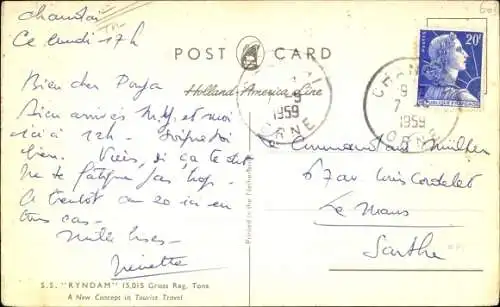 Chanu
Ce lundi 17h
POST CARD
Holland-America Line
Bien cher Papa
Bien arrivés M.Y. et moi
ici à 12h.
bien. Viens, si ça te dit
Ne te fatigue pas trop.
A bientôt ou 20 ici en
tous cas.
Mille bises.
Ninette
S.S. "RYNDAM" 15,015 Gross Reg. Tons
A New Concept in Tourist Travel
Printed in the Netherlands
9
1959
ORNE
CHANU
9
7
1959
ORNE
POSTES
20F
REPUBLIQUE FRANÇAISE
Commandant
67 av Louis Cordelet
Le Mans
Sarthe